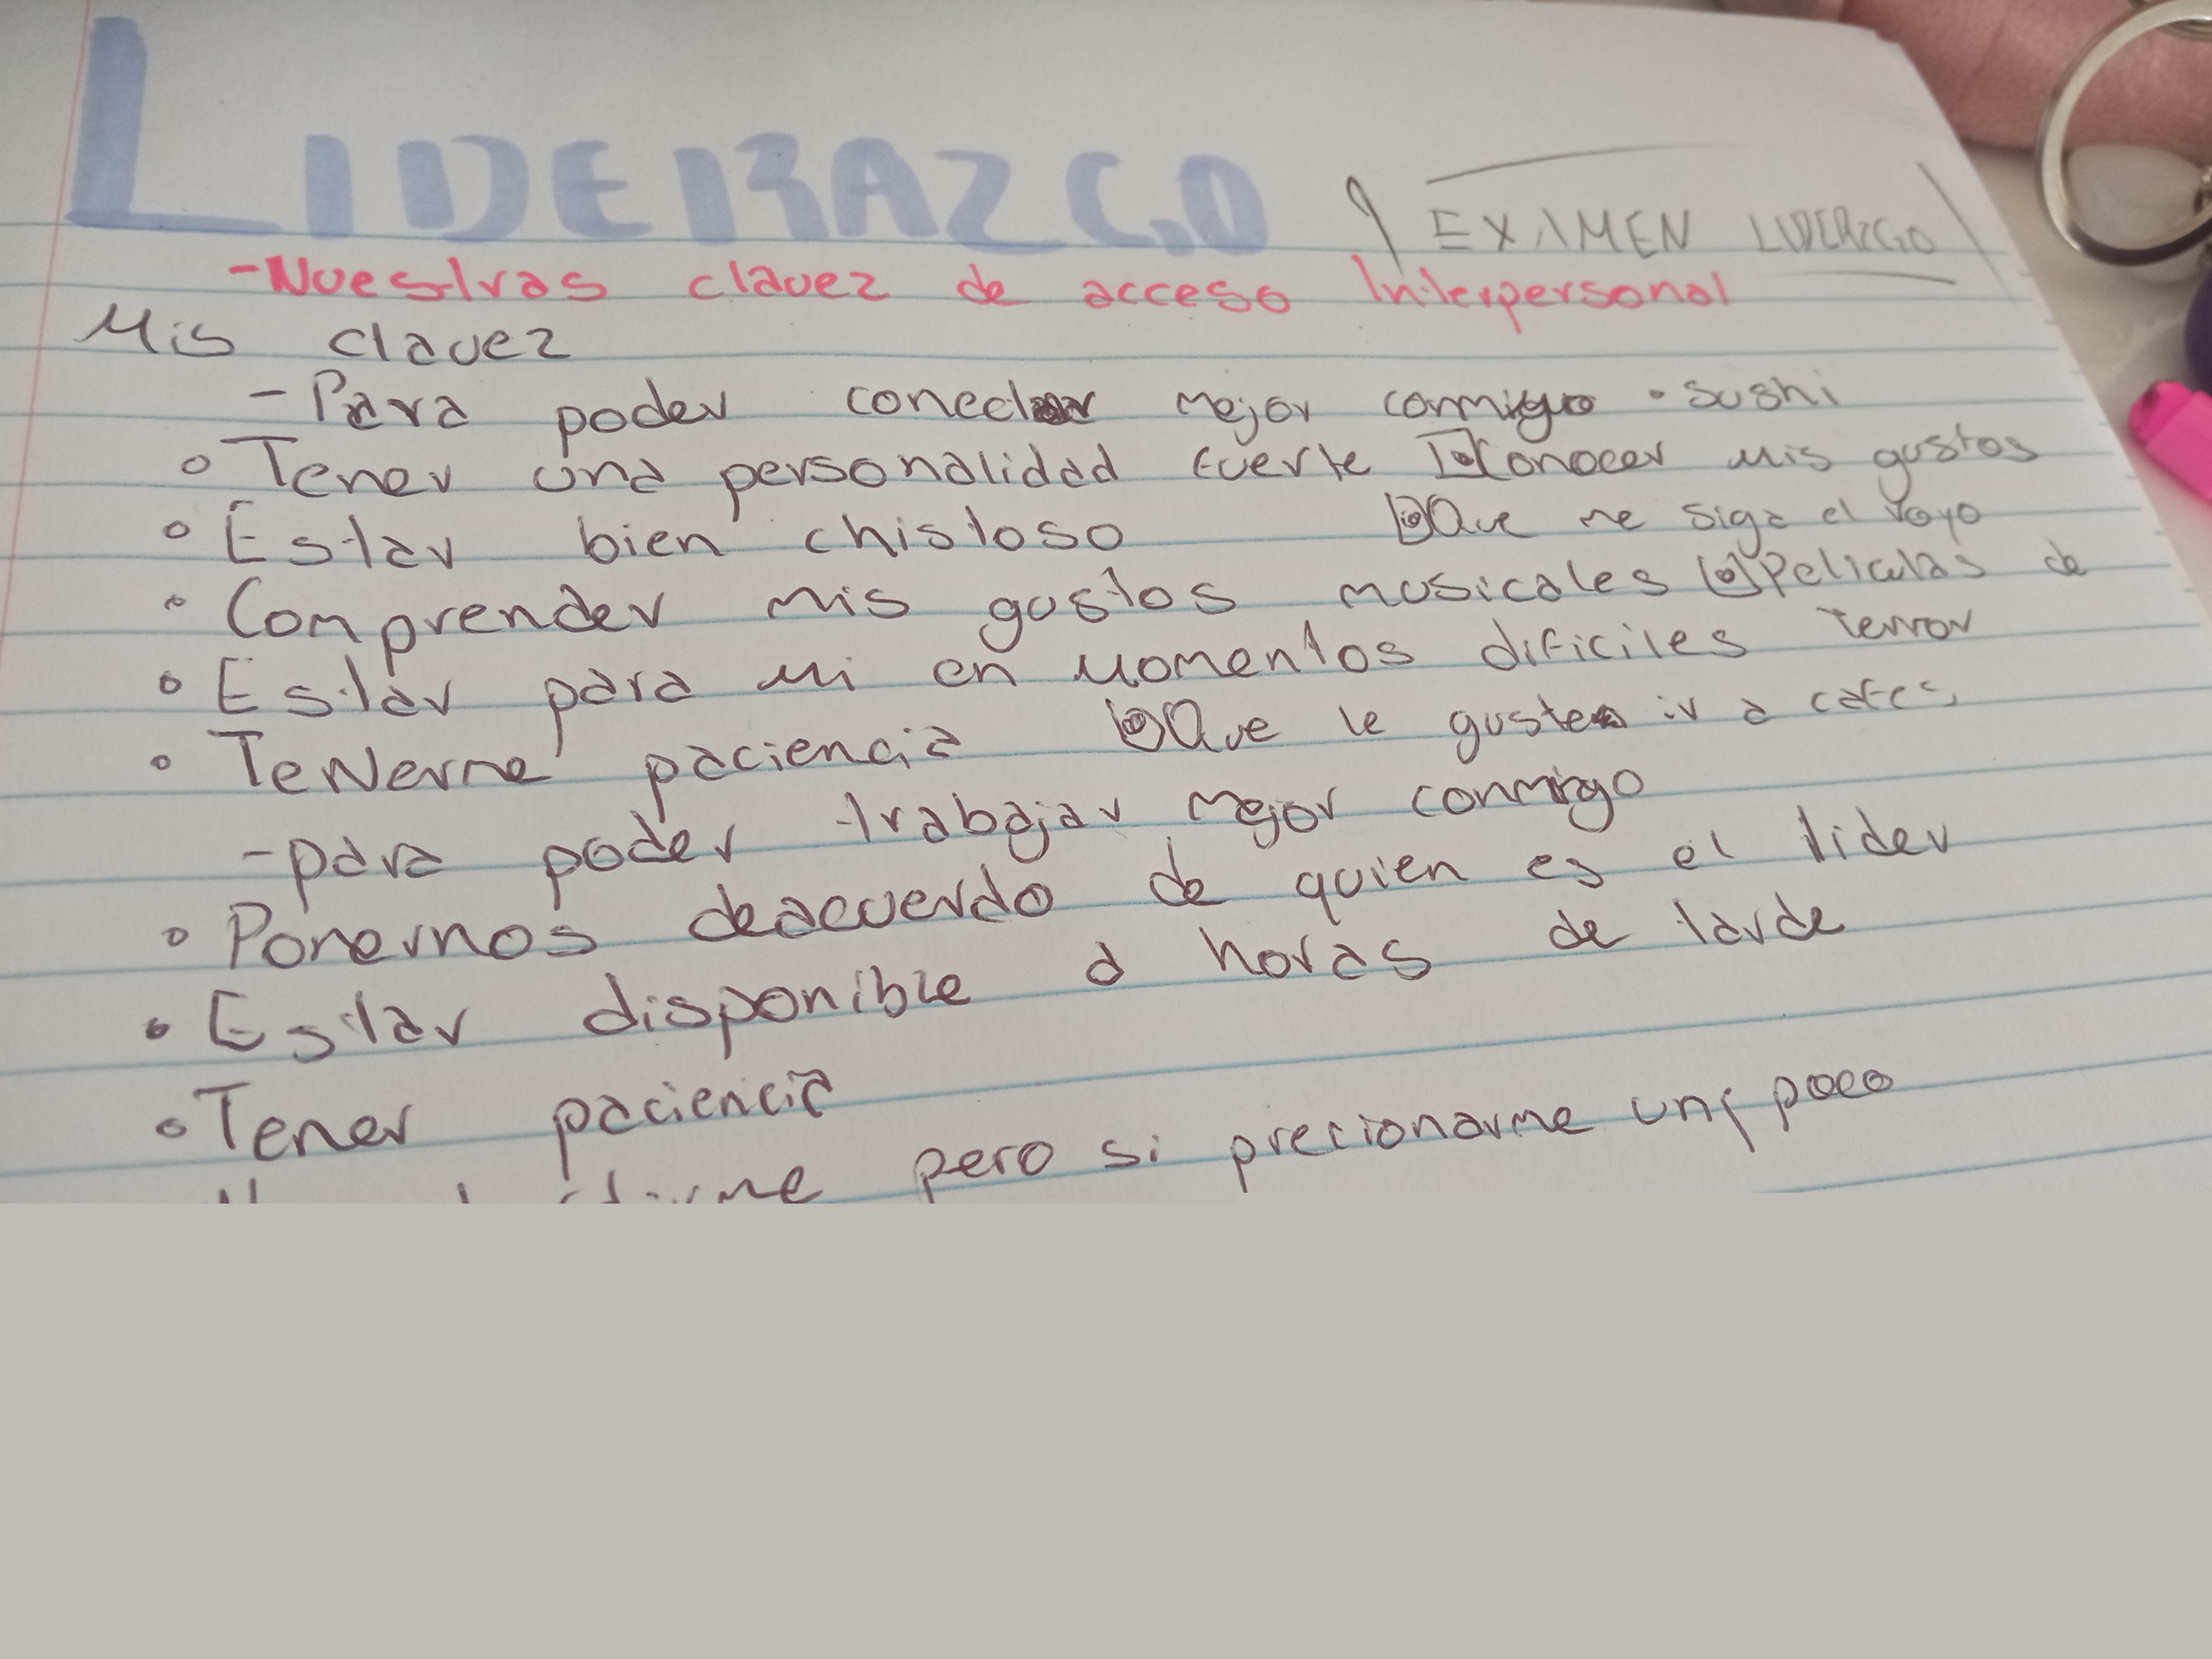 LIDERAZGO
EXAMEN LIDERZGO
-Nuestras clavez de acceso Interpersonal
Mis clavez
-Para poder conectar mejor conmigo • Sushi
• Tener una personalidad fuerte • Conocer mis gustos
• Estar bien chistoso • Que me siga el royo
• Comprender mis gustos musicales • Peliculas de
terror
• Estar para mi en momentos dificiles
• Tenerme paciencia • Que le guste ir a cafes
-para poder trabajar mejor conmigo
• Ponernos deacuerdo de quien es el lider
• Estar disponible a horas de tarde
• Tener paciencia
pero si precionarme un poco